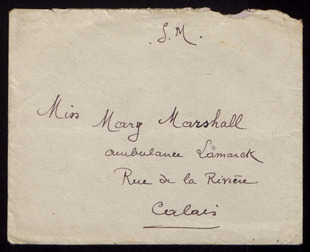 .S.M.
Miss Mary Marshall
ambulance Lamarck
Rue de la Rivière
Calais